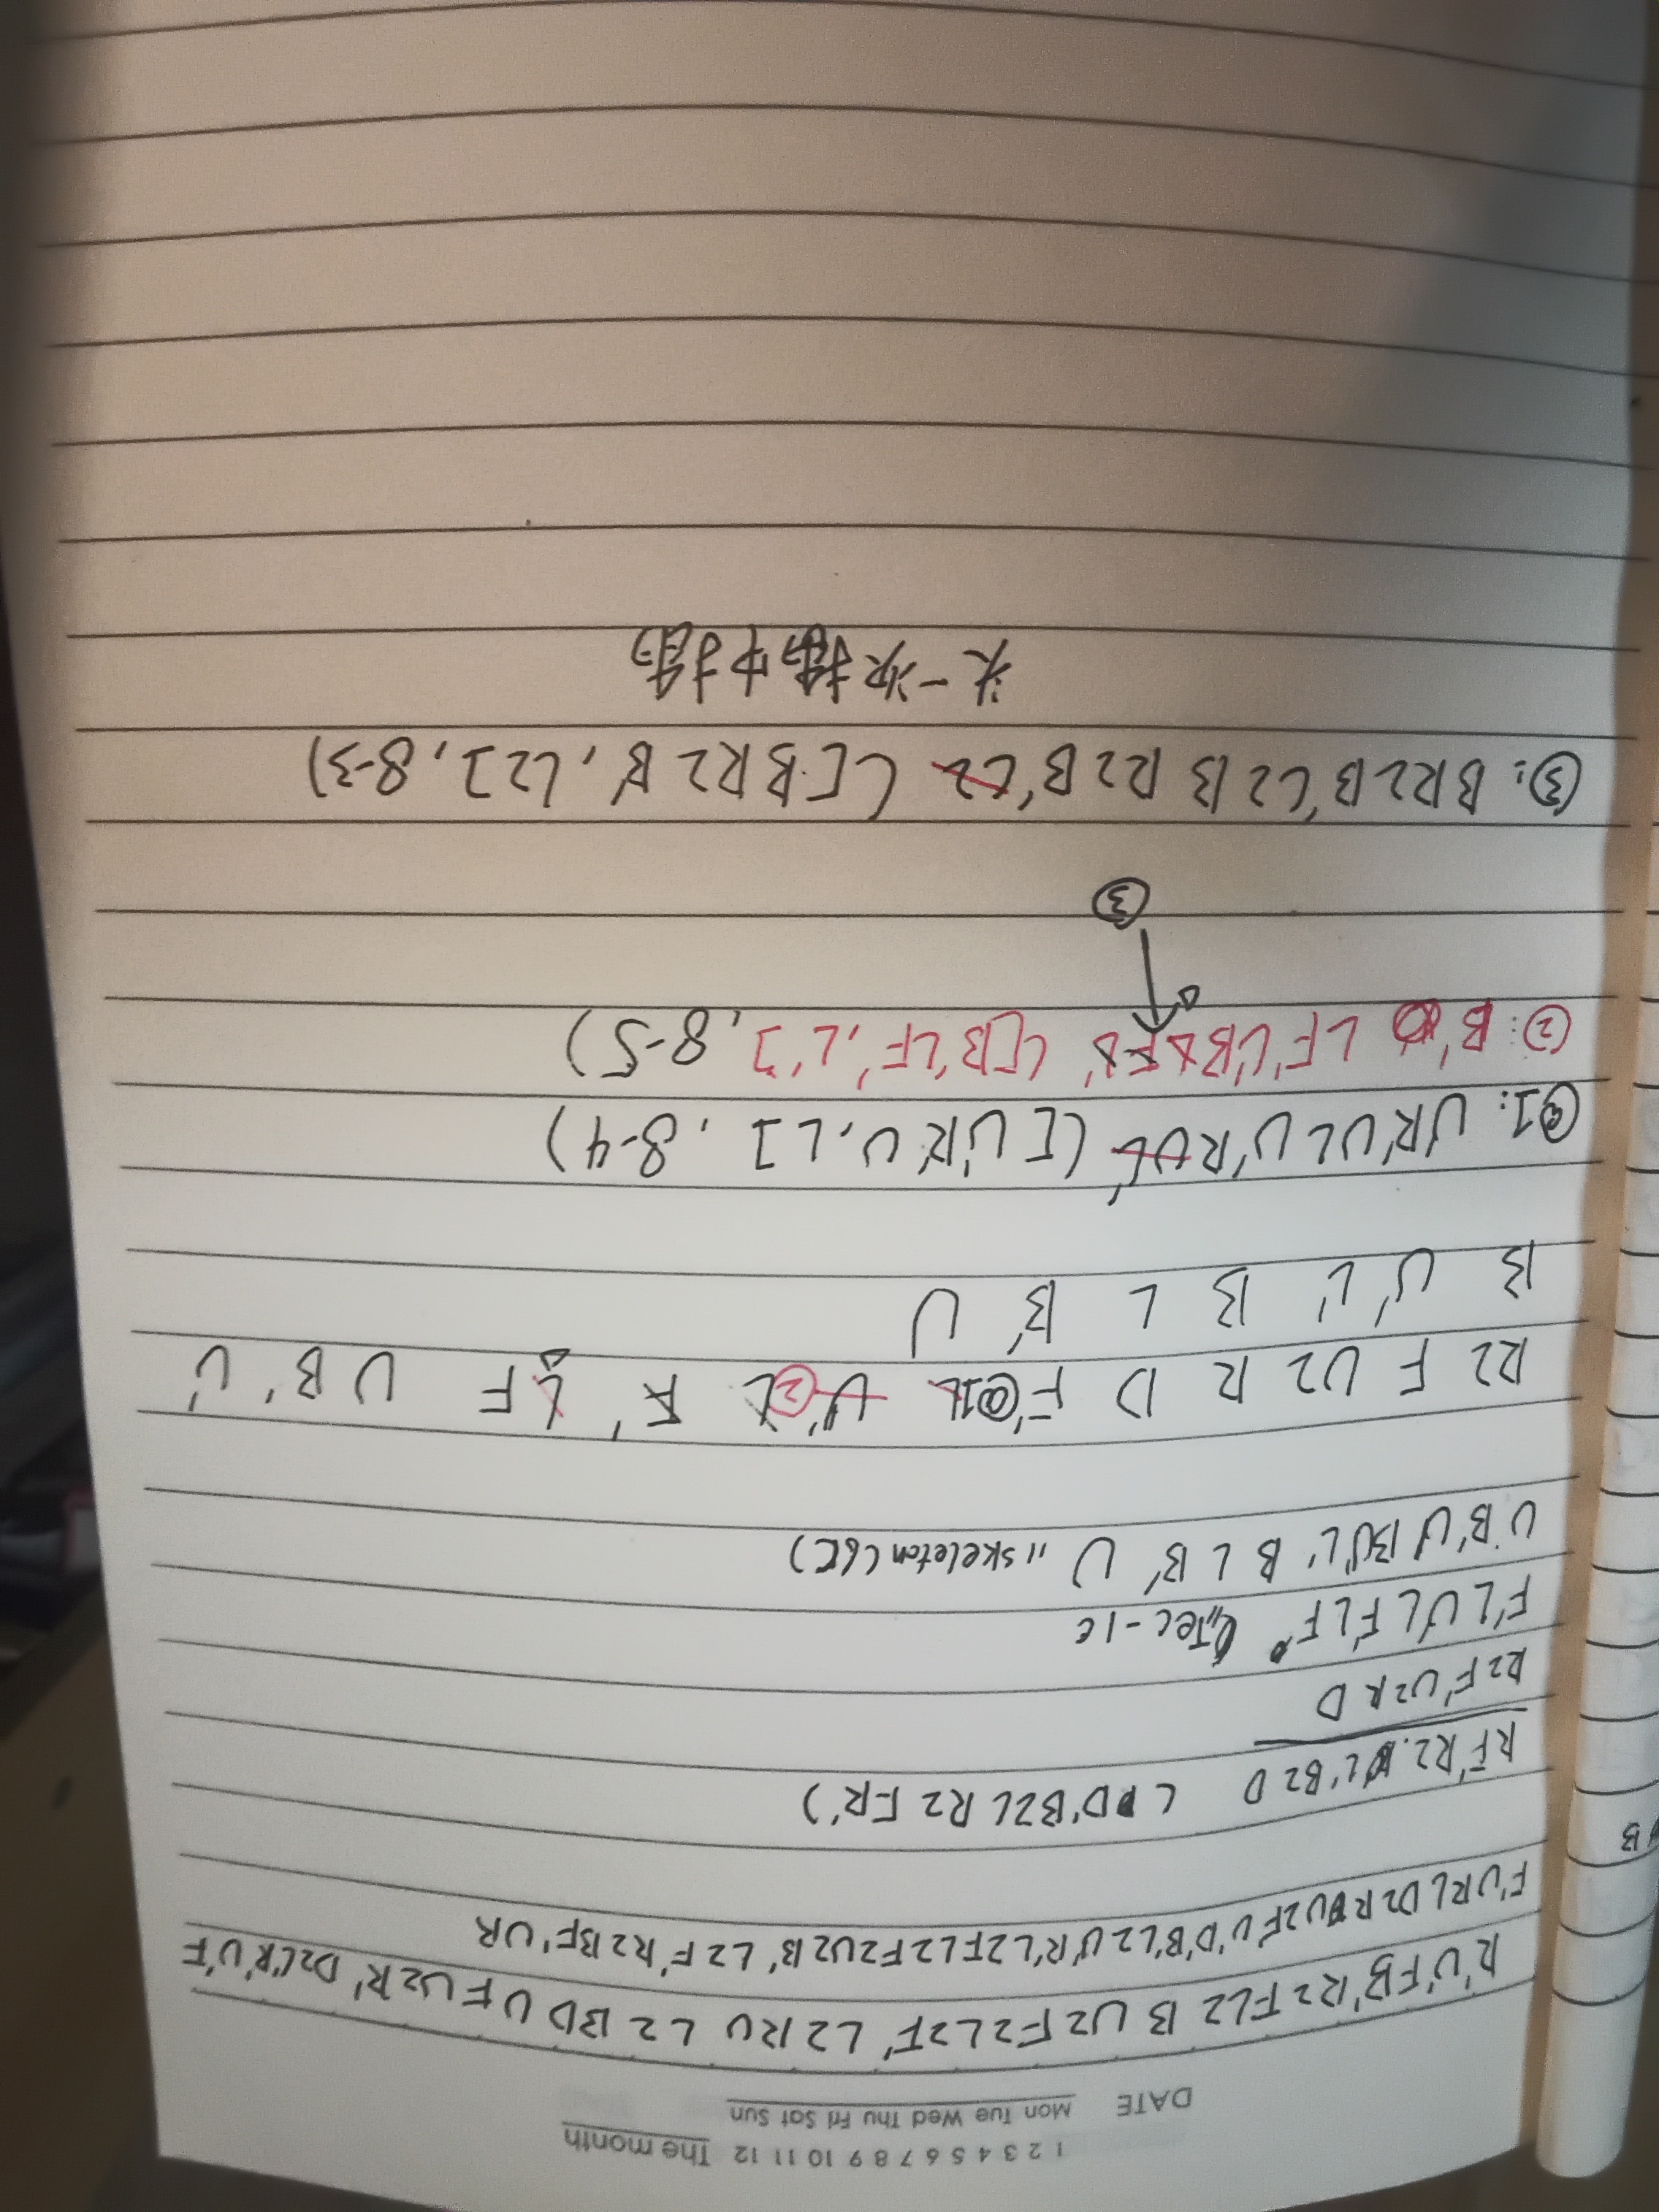 1 2 3 4 5 6 7 8 9 10 11 12 The month
DATE Mon Tue Wed Thu Fri Sat Sun
R'U'FB'R2FL2 B U2F2L2F' L2RU L2 BD U F U2R' D2L'R'U'F
F'URLD2RU2F'U'D'B'L2U'R'L2FL2F2U2B' L2F'R2BF'UR
RF'R2.L'B2D ( D'B2LR2FR')
R2F'U2RD
F'L'U'LF'LF' //Tec-1c
UB'U'BU'L' B L B' U //skeleton(6c)
R2 F U2 R D F' L U' L F' L' F U B' U'
B U' L' B L B' U
1: U'R'ULU'RUL' ([U'R'U,L] ,8-4)
②: B' LF'L'B ([B'LF',L'],8-5)
③
③: BR2B'L2BR2B'L2 ([BR2B',L2],8-3)